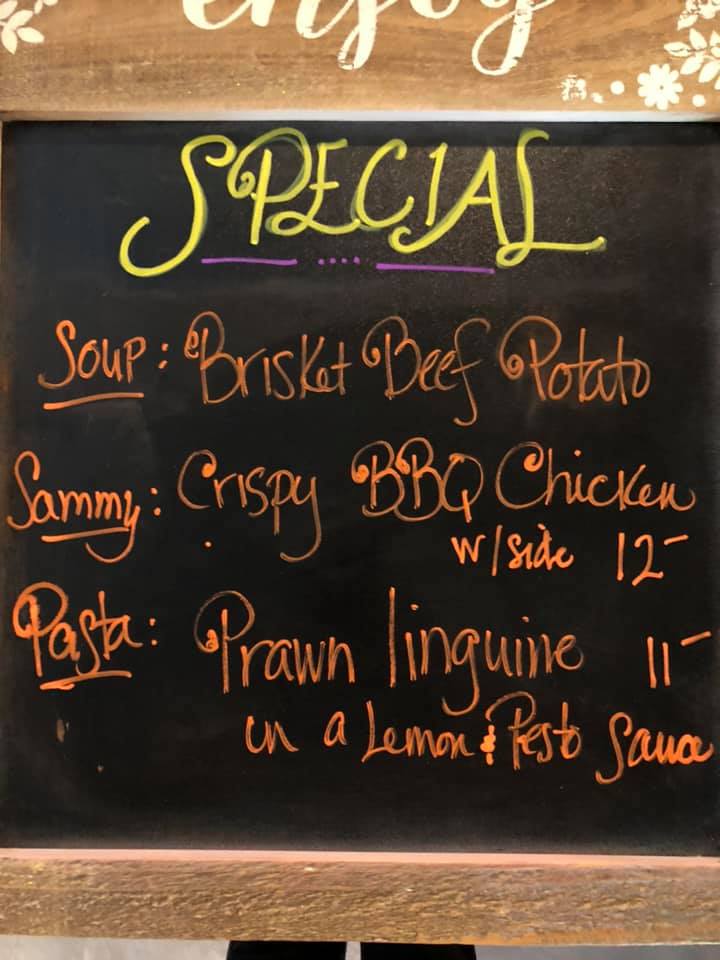 enjoy
SPECIAL
Soup: Brisket Beef Potato
Sammy: Crispy BBQ Chicken
w/side 12-
Pasta: Prawn linguine 11-
in a Lemon & Pesto Sauce